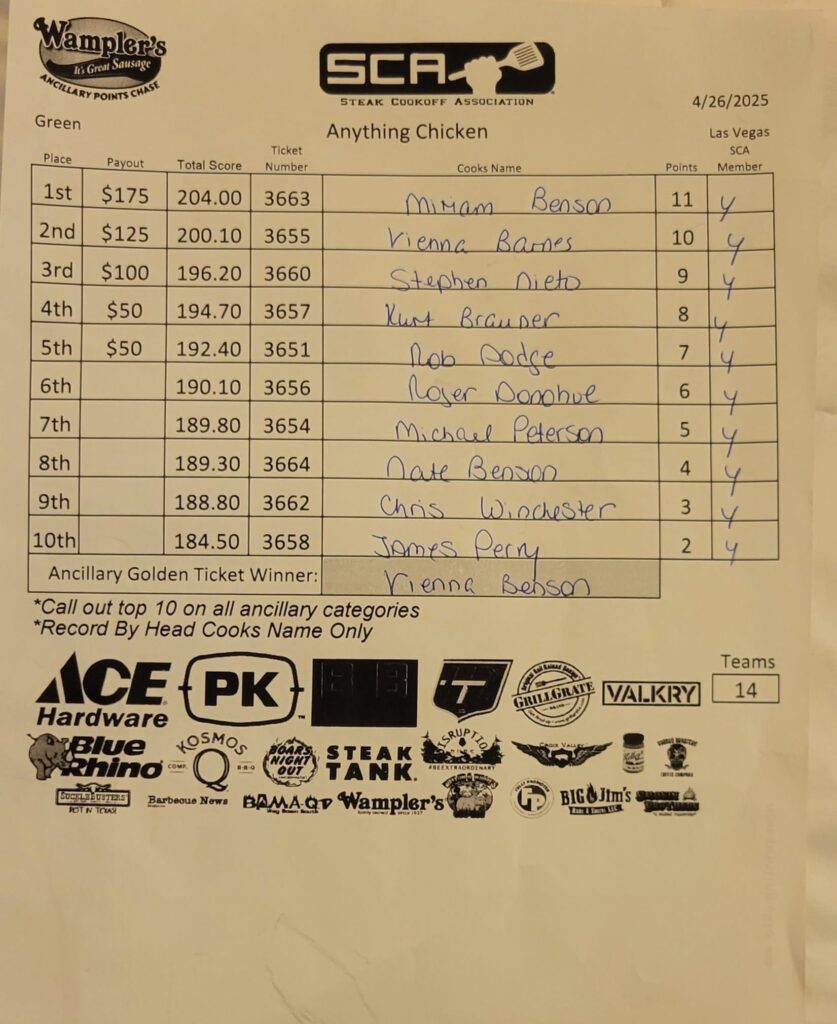 Wampler's
It's Great Sausage
ANCILLARY POINTS CHASE
SCA
STEAK COOKOFF ASSOCIATION
4/26/2025
Green
Anything Chicken
Las Vegas
Place Payout Total Score Ticket Number Cooks Name Points SCA Member
1st $175 204.00 3663 Miriam Benson 11 y
2nd $125 200.10 3655 Vienna Barnes 10 y
3rd $100 196.20 3660 Stephen Nieto 9 y
4th $50 194.70 3657 Kurt Brauner 8 y
5th $50 192.40 3651 Rob Dodge 7 y
6th 190.10 3656 Roger Donohue 6 y
7th 189.80 3654 Michael Peterson 5 y
8th 189.30 3664 Nate Benson 4 y
9th 188.80 3662 Chris Winchester 3 y
10th 184.50 3658 James Perry 2 y
Ancillary Golden Ticket Winner: Vienna Benson
*Call out top 10 on all ancillary categories
*Record By Head Cooks Name Only
Teams
14
ACE Hardware
PK
T
GRILLGRATE
VALKRY
Blue Rhino
KOSMOS Q
COMP. B-B-Q
BOARS NIGHT OUT
STEAK TANK
DISRUPTION
#BEEXTRAORDINARY
CROIX VALLEY
SUCKLEBUSTERS
HOT IN TEXAS
Barbecue News
BAMA Q TV
Wampler's
BIG JIM'S